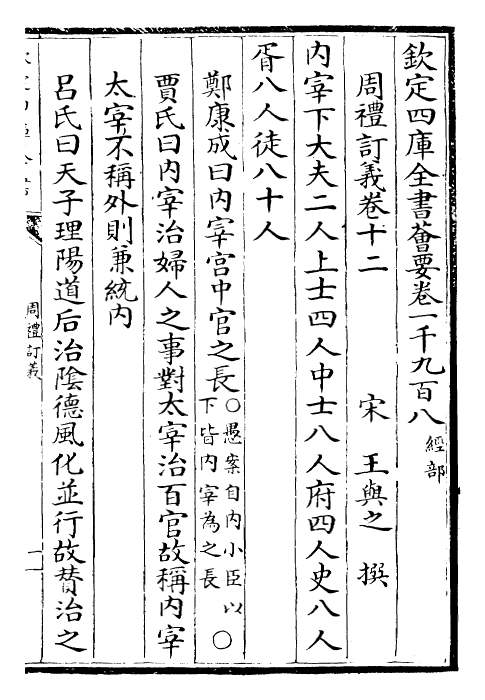 欽定四庫全書薈要卷一千九百八 經部
周禮訂義卷十二
宋 王與之 撰
內宰下大夫二人上士四人中士八人府四人史八人
胥八人徒八十人
鄭康成曰內宰宮中官之長○愚案自內小臣以下皆內宰為之長○
賈氏曰內宰治婦人之事對太宰治百官故稱內宰
太宰不稱外則兼統內
呂氏曰天子理陽道后治陰德風化並行故贊治之
周禮訂義
一